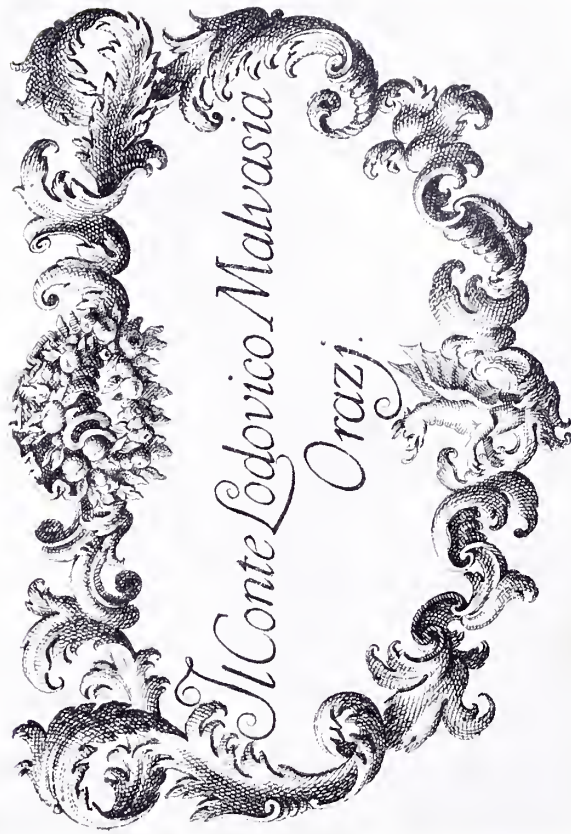 Il Conte Lodovico Malvasia
Orazj.